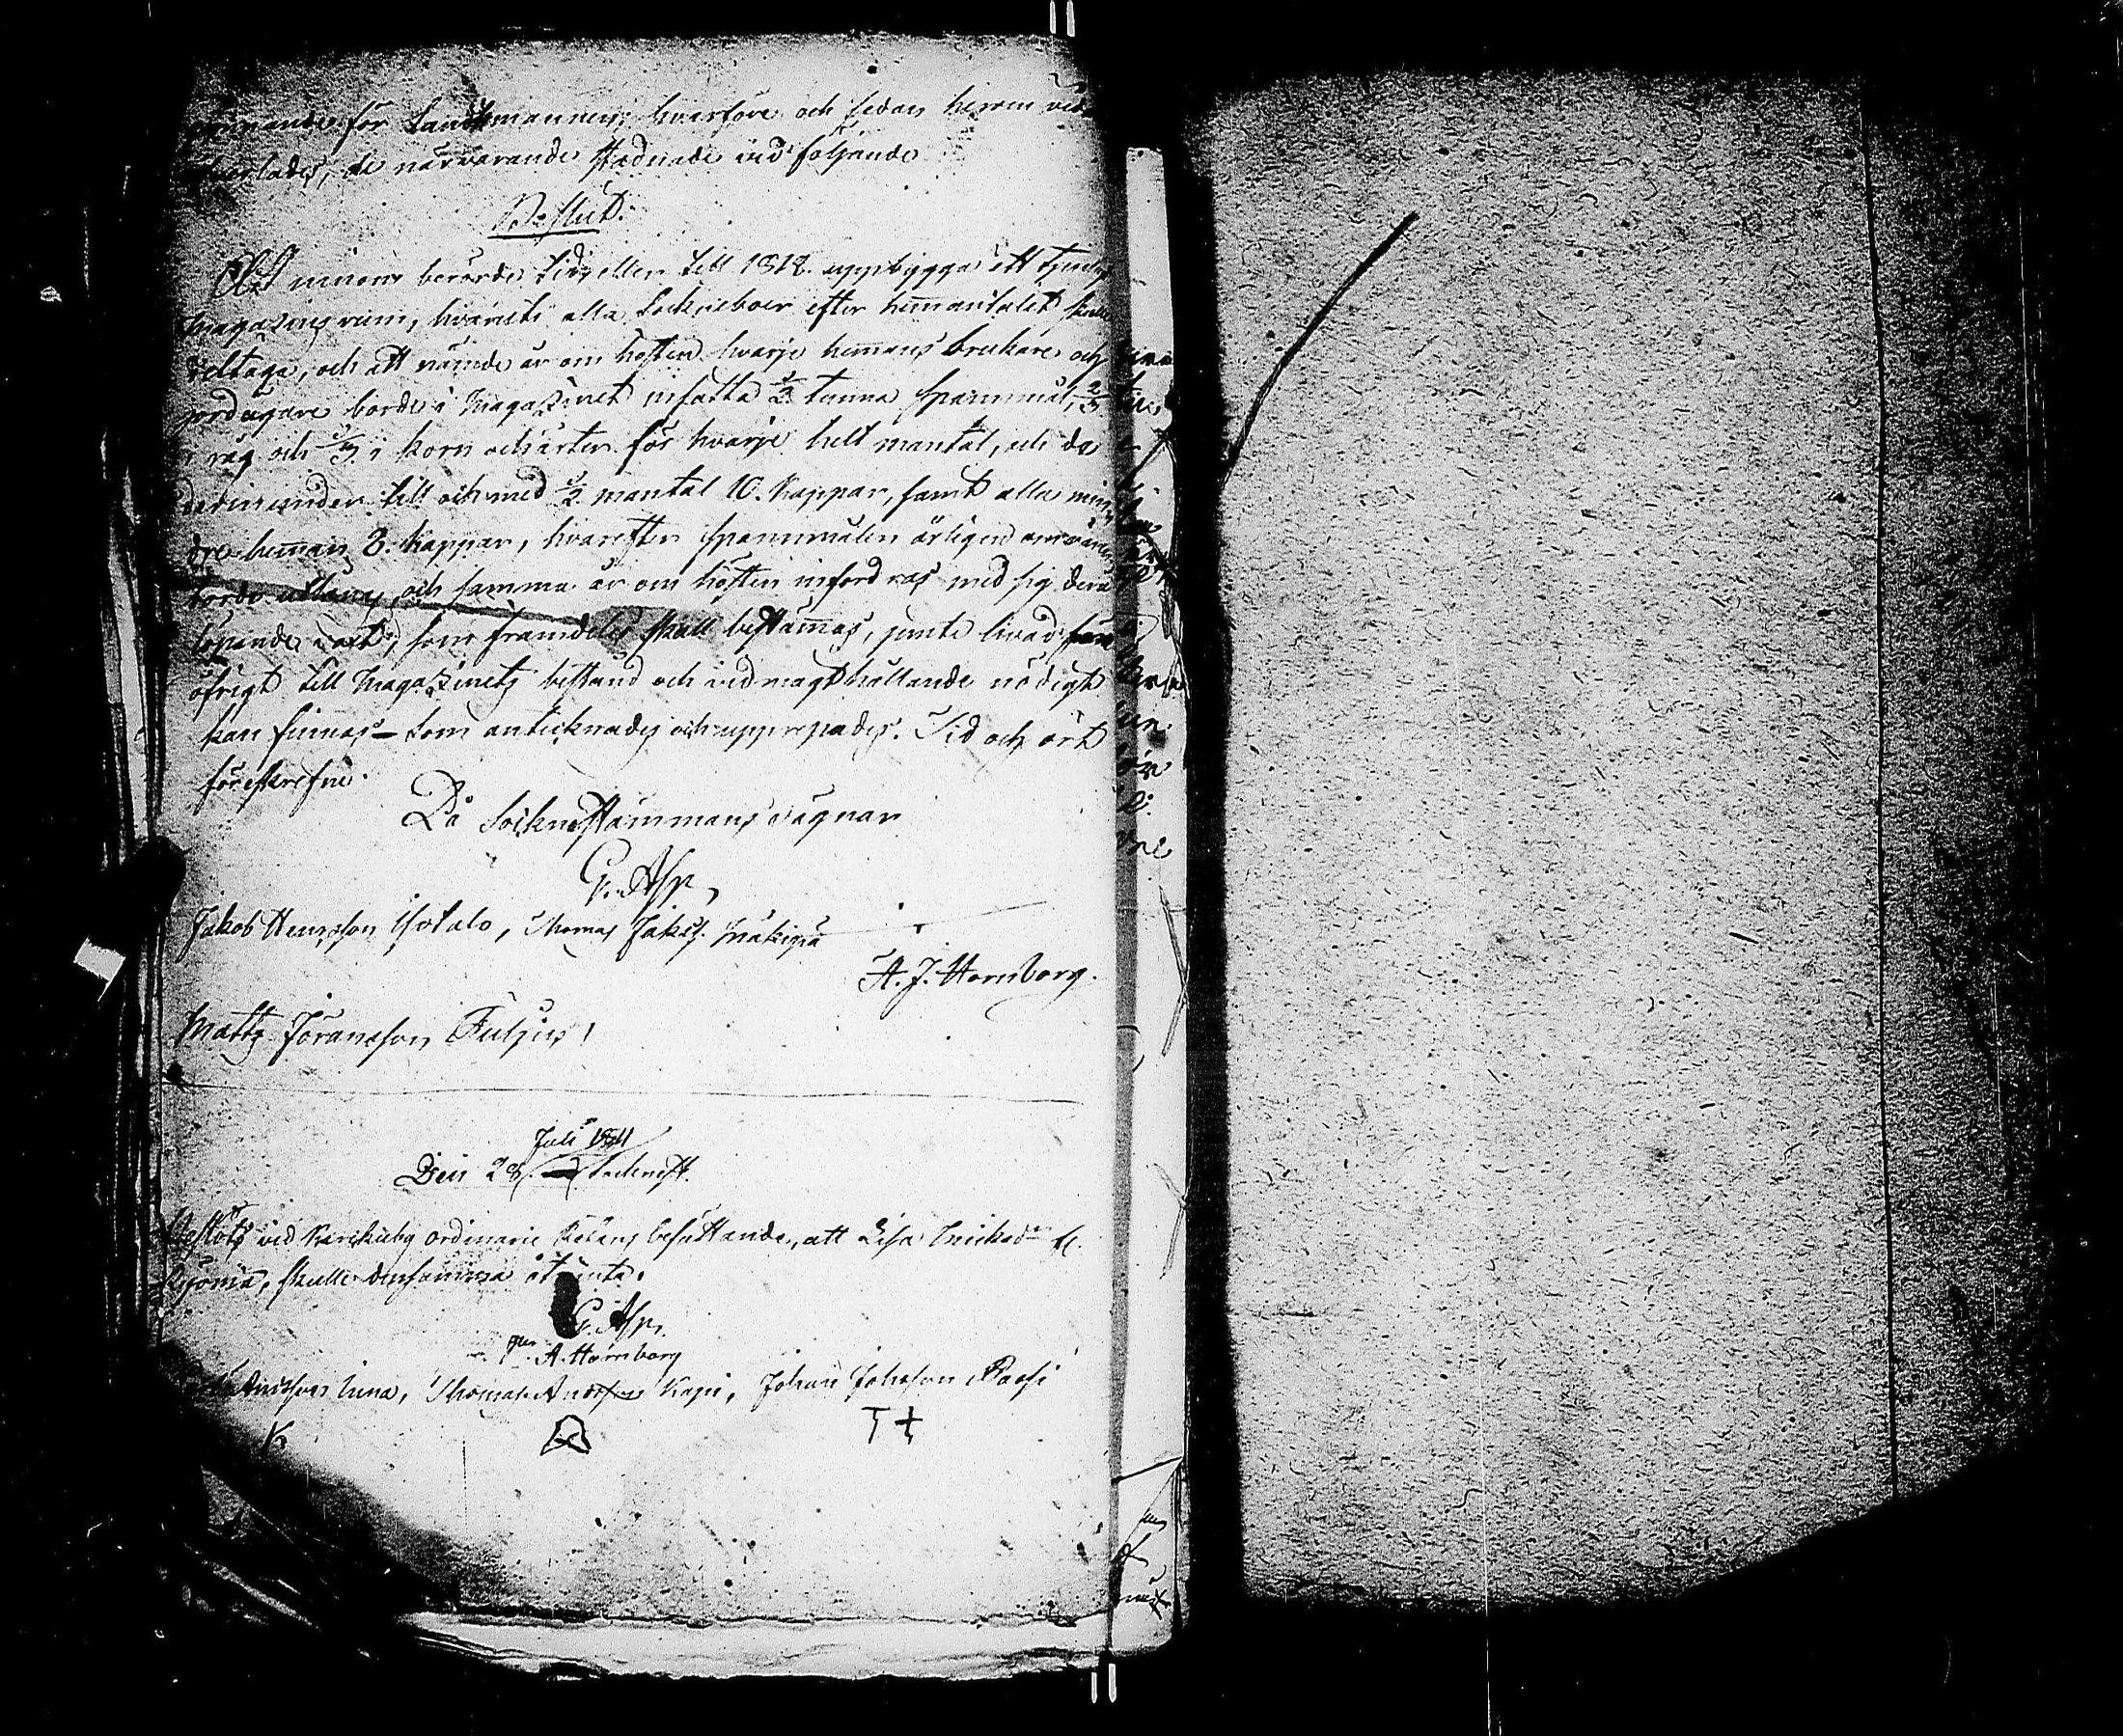 för Landtmannen, hvarföre och sedan herom vid
de närvarande stadnade vid följande
Beslut:
Att innom berörde tid, eller till 1812. uppbygga ett
magazins rum, hvaruti alla Sockneboer efter hemantalet skulle
deltaga, och att nämde år om hösten hvarje hemans brukare och
jordägare borde i Magazinet insätta 1/2 tunna spannmål, 2/3
i råg och 1/3 i korn och arter för hvarje helt mantal, och de
derinunder till och med 1/2 mantal 10. kappar, samt alla min-
dre heman 8. kappar, hvarefter spannmålen årligen
borde utlånas, och samma år om hösten infordras med sig derå
löpande växt, som framdeles skall bestämmas, jemte hvad
öfrigt till Magazinetz bestånd och vidmagthållande nödigt
kan finnas – som antecknades och upprepades. Tid och ort
förestrefne.
På Sockne Stämmans vägnar
G. Asp,
Jakob Hensson Isotalo, Thomas Jakss. Mäkipä
A. J. Hornborg.
Matts Jöransson
Juli 1811
Den 28 Socknest.
Beslöts vid ordinarie besättande, att Lisa
skulle densamma
G. Asp.
A. Hornborg
Thomas Andersson Kapi, Johan Johsson Paasi
T +